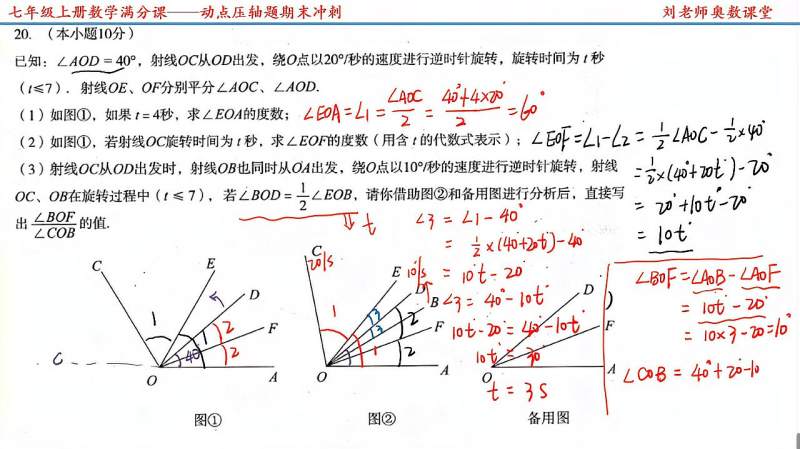 七年级上册数学满分课——动点压轴题期末冲刺
刘老师奥数课堂
20. （本小题10分）
已知：∠AOD = 40°，射线OC从OD出发，绕O点以20°/秒的速度进行逆时针旋转，旋转时间为 t 秒
（t≤7）. 射线OE、OF分别平分∠AOC、∠AOD.
（1）如图①，如果 t = 4秒，求∠EOA的度数；
∠EOA=∠1=∠AOC/2=(40°+4×20°)/2=60°
（2）如图①，若射线OC旋转时间为 t 秒，求∠EOF的度数（用含 t 的代数式表示）；
∠EOF=∠1-∠2=1/2∠AOC-1/2×40°
=1/2×(40°+20t)-20°
=20°+10t°-20°
=10t°
（3）射线OC从OD出发时，射线OB也同时从OA出发，绕O点以10°/秒的速度进行逆时针旋转，射线
OC、OB在旋转过程中（t ≤ 7），若∠BOD = 1/2∠EOB，请你借助图②和备用图进行分析后，直接写
出 ∠BOF/∠COB 的值.
t
∠3=∠1-40°
=1/2×(40+20t)-40°
=10t-20
∠3=40°-10t
10t-20=40°-10t
10t=30
t=3s
∠BOF=∠AOB-∠AOF
=10t-20°
=10×3-20=10°
∠COB=40°+20-10
C
E
D
F
A
O
1
1
2
2
40°
C
图①
C
20/s
E
10/s
D
B
F
A
O
1
1
3
3
2
2
图②
D
F
A
O
备用图